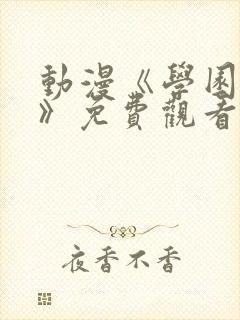 動漫《學園
》免費觀看
夜香不香